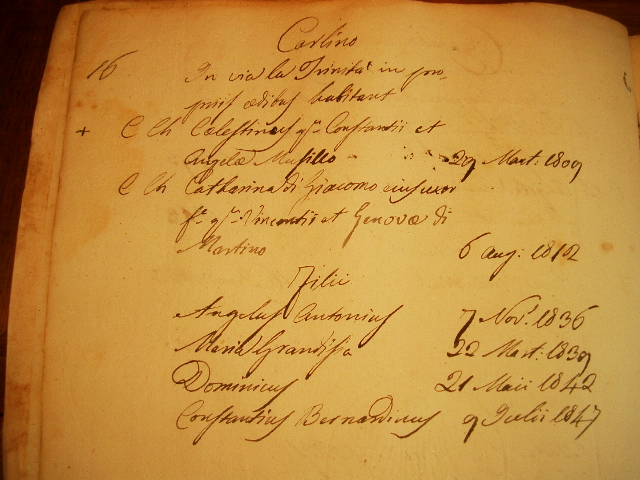 Carlino
16 In via la Trinità in pro-
priis ædibus habitant
+ C Ch Cælestinus qm Constantii et
Angelæ Musillo 29 Mart: 1809
C Ch Catharina di Giacomo eius uxor
fa qm Vincentii et Genovæ di
Martino 6 Aug: 1812
Filii
Angelus Antonius 7 Nov: 1836
Maria Grandissa 22 Mart: 1839
Dominicus 21 Maii 1842
Constantius Bernardinus 9 Julii 1847